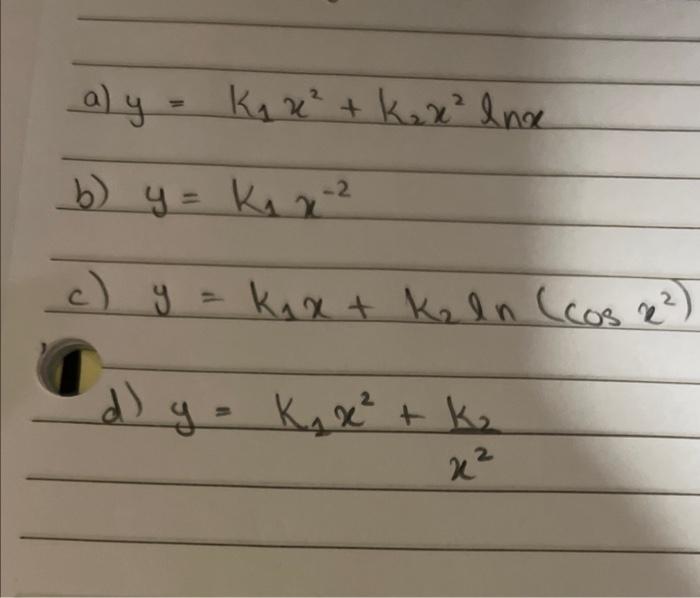 a) y = K₁x² + K₂x² lnx
b) y = K₁x⁻²
c) y = K₁x + K₂ ln (cos x²)
d) y = K₁x² + K₂/x²